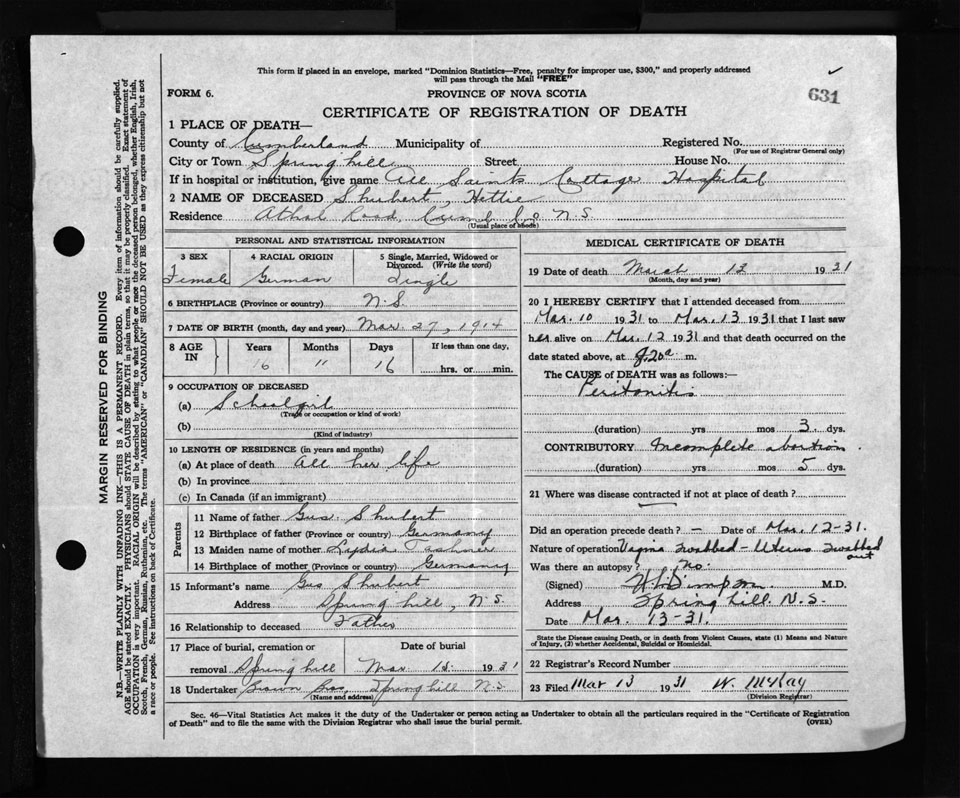 This form if placed in an envelope, marked "Dominion Statistics—Free, penalty for improper use, $300," and properly addressed
will pass through the Mail "FREE"
FORM 6.
PROVINCE OF NOVA SCOTIA
631
CERTIFICATE OF REGISTRATION OF DEATH
1 PLACE OF DEATH—
County of Cumberland Municipality of Registered No.
(For use of Registrar General only)
City or Town Springhill Street House No.
If in hospital or institution, give name All Saints Cottage Hospital
2 NAME OF DECEASED Shubert, Hettie
Residence Athol Road, Cumb. Co. N.S.
(Usual place of abode)
PERSONAL AND STATISTICAL INFORMATION
3 SEX 4 RACIAL ORIGIN 5 Single, Married, Widowed or
Divorced. (Write the word)
Female German Single
6 BIRTHPLACE (Province or country) N.S.
7 DATE OF BIRTH (month, day and year) Mar. 27, 1914
8 AGE IN Years Months Days If less than one day,
16 11 16 hrs. or min.
9 OCCUPATION OF DECEASED
(a) Schoolgirl
(Trade or occupation or kind of work)
(b)
(Kind of industry)
10 LENGTH OF RESIDENCE (in years and months)
(a) At place of death All her life
(b) In province
(c) In Canada (if an immigrant)
Parents
11 Name of father Gus Shubert
12 Birthplace of father (Province or country) Germany
13 Maiden name of mother Lydia
14 Birthplace of mother (Province or country) Germany
15 Informant's name Gus Shubert
Address Springhill, N.S.
16 Relationship to deceased Father
17 Place of burial, cremation or Date of burial
removal Springhill Mar 1931
18 Undertaker Brown Bros, Springhill N.S.
(Name and address)
MEDICAL CERTIFICATE OF DEATH
19 Date of death March 13 1931
(Month, day and year)
20 I HEREBY CERTIFY that I attended deceased from
Mar. 10 1931 to Mar. 13 1931 that I last saw
her alive on Mar. 12 1931 and that death occurred on the
date stated above, at 8.20a m.
The CAUSE of DEATH was as follows:—
Peritonitis
(duration) yrs mos 3 dys.
CONTRIBUTORY Incomplete abortion
(duration) yrs mos 5 dys.
21 Where was disease contracted if not at place of death?
Did an operation precede death? — Date of Mar. 12-31.
Nature of operation Vagina swabbed - Uterus swabbed
out
Was there an autopsy? No.
(Signed) M.D.
Address Springhill N.S.
Date Mar. 13-31.
State the Disease causing Death, or in death from Violent Causes, state (1) Means and Nature
of Injury, (2) whether Accidental, Suicidal or Homicidal.
22 Registrar's Record Number
23 Filed Mar 13 1931 W. McKay
(Division Registrar)
Sec. 46—Vital Statistics Act makes it the duty of the Undertaker or person acting as Undertaker to obtain all the particulars required in the "Certificate of Registration
of Death" and to file the same with the Division Registrar who shall issue the burial permit. (OVER)
MARGIN RESERVED FOR BINDING
N.B.—WRITE PLAINLY WITH UNFADING INK—THIS IS A PERMANENT RECORD. Every item of information should be carefully supplied.
AGE should be stated EXACTLY. PHYSICIANS should STATE CAUSE OF DEATH in plain terms, so that it may be properly classified. Exact statement of
OCCUPATION is very important. RACIAL ORIGIN will be described by stating to what people or race the deceased person belonged, whether English, Irish,
Scotch, French, German, Russian, Ruthenian, etc. The terms "AMERICAN" or "CANADIAN" SHOULD NOT BE USED as they express citizenship but not
a race or people. See instructions on back of Certificate.